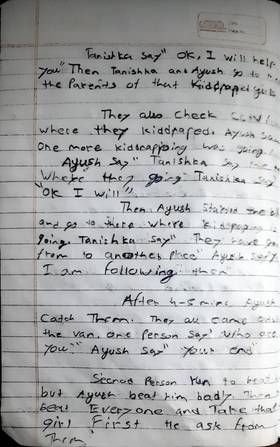 Tanishka say" OK, I will help
you" Then Tanishka and Ayush go to
the Parents of that Kiddpaped
They also check CCTV
where they kiddpaped. Ayush
one more kiddnapping was going
Ayush say" Tanishka say
Where they going Tanishka say
"OK I will"
Then Ayush Started the
and go to there where
going. Tanishka say" They have
from to another place" Ayush say"
I am following them
After 4-5 mins Ayush
Catch Them. They all came
the van. one person say' Who are
you?" Ayush say" your end"
Second Person run to beat
but Ayush beat him badly Then
beat Everyone and Take that
girl First he ask from
Them